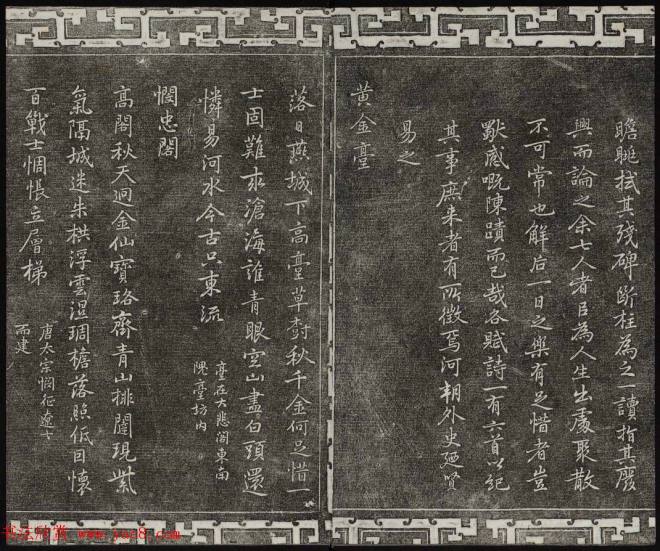 瞻眺拭其殘碑斷柱為之一讀指其廢
興而論之余七人者以為人生出處聚散
不可常也解后一日之樂有足惜者豈
獨感嘅陳蹟而已哉各賦詩一有六首以紀
其事庶来者有所徵焉河朔外史廼賢
易之
黃金臺
落日燕城下高臺草樹秋千金何足惜一
士固難求滄海誰青眼空山盡白頭還
憐易河水今古只東流
臺在大悲閣東南
隗臺坊内
憫忠閣
高閣秋天迥金仙寶珞齊青山排闥現紫
氣隔城迷朱栱浮雲濕琱檐落照低因懷
百戰士惆悵立層梯
唐太宗憫征遼士
而建
书法欣赏 www.yac8.com